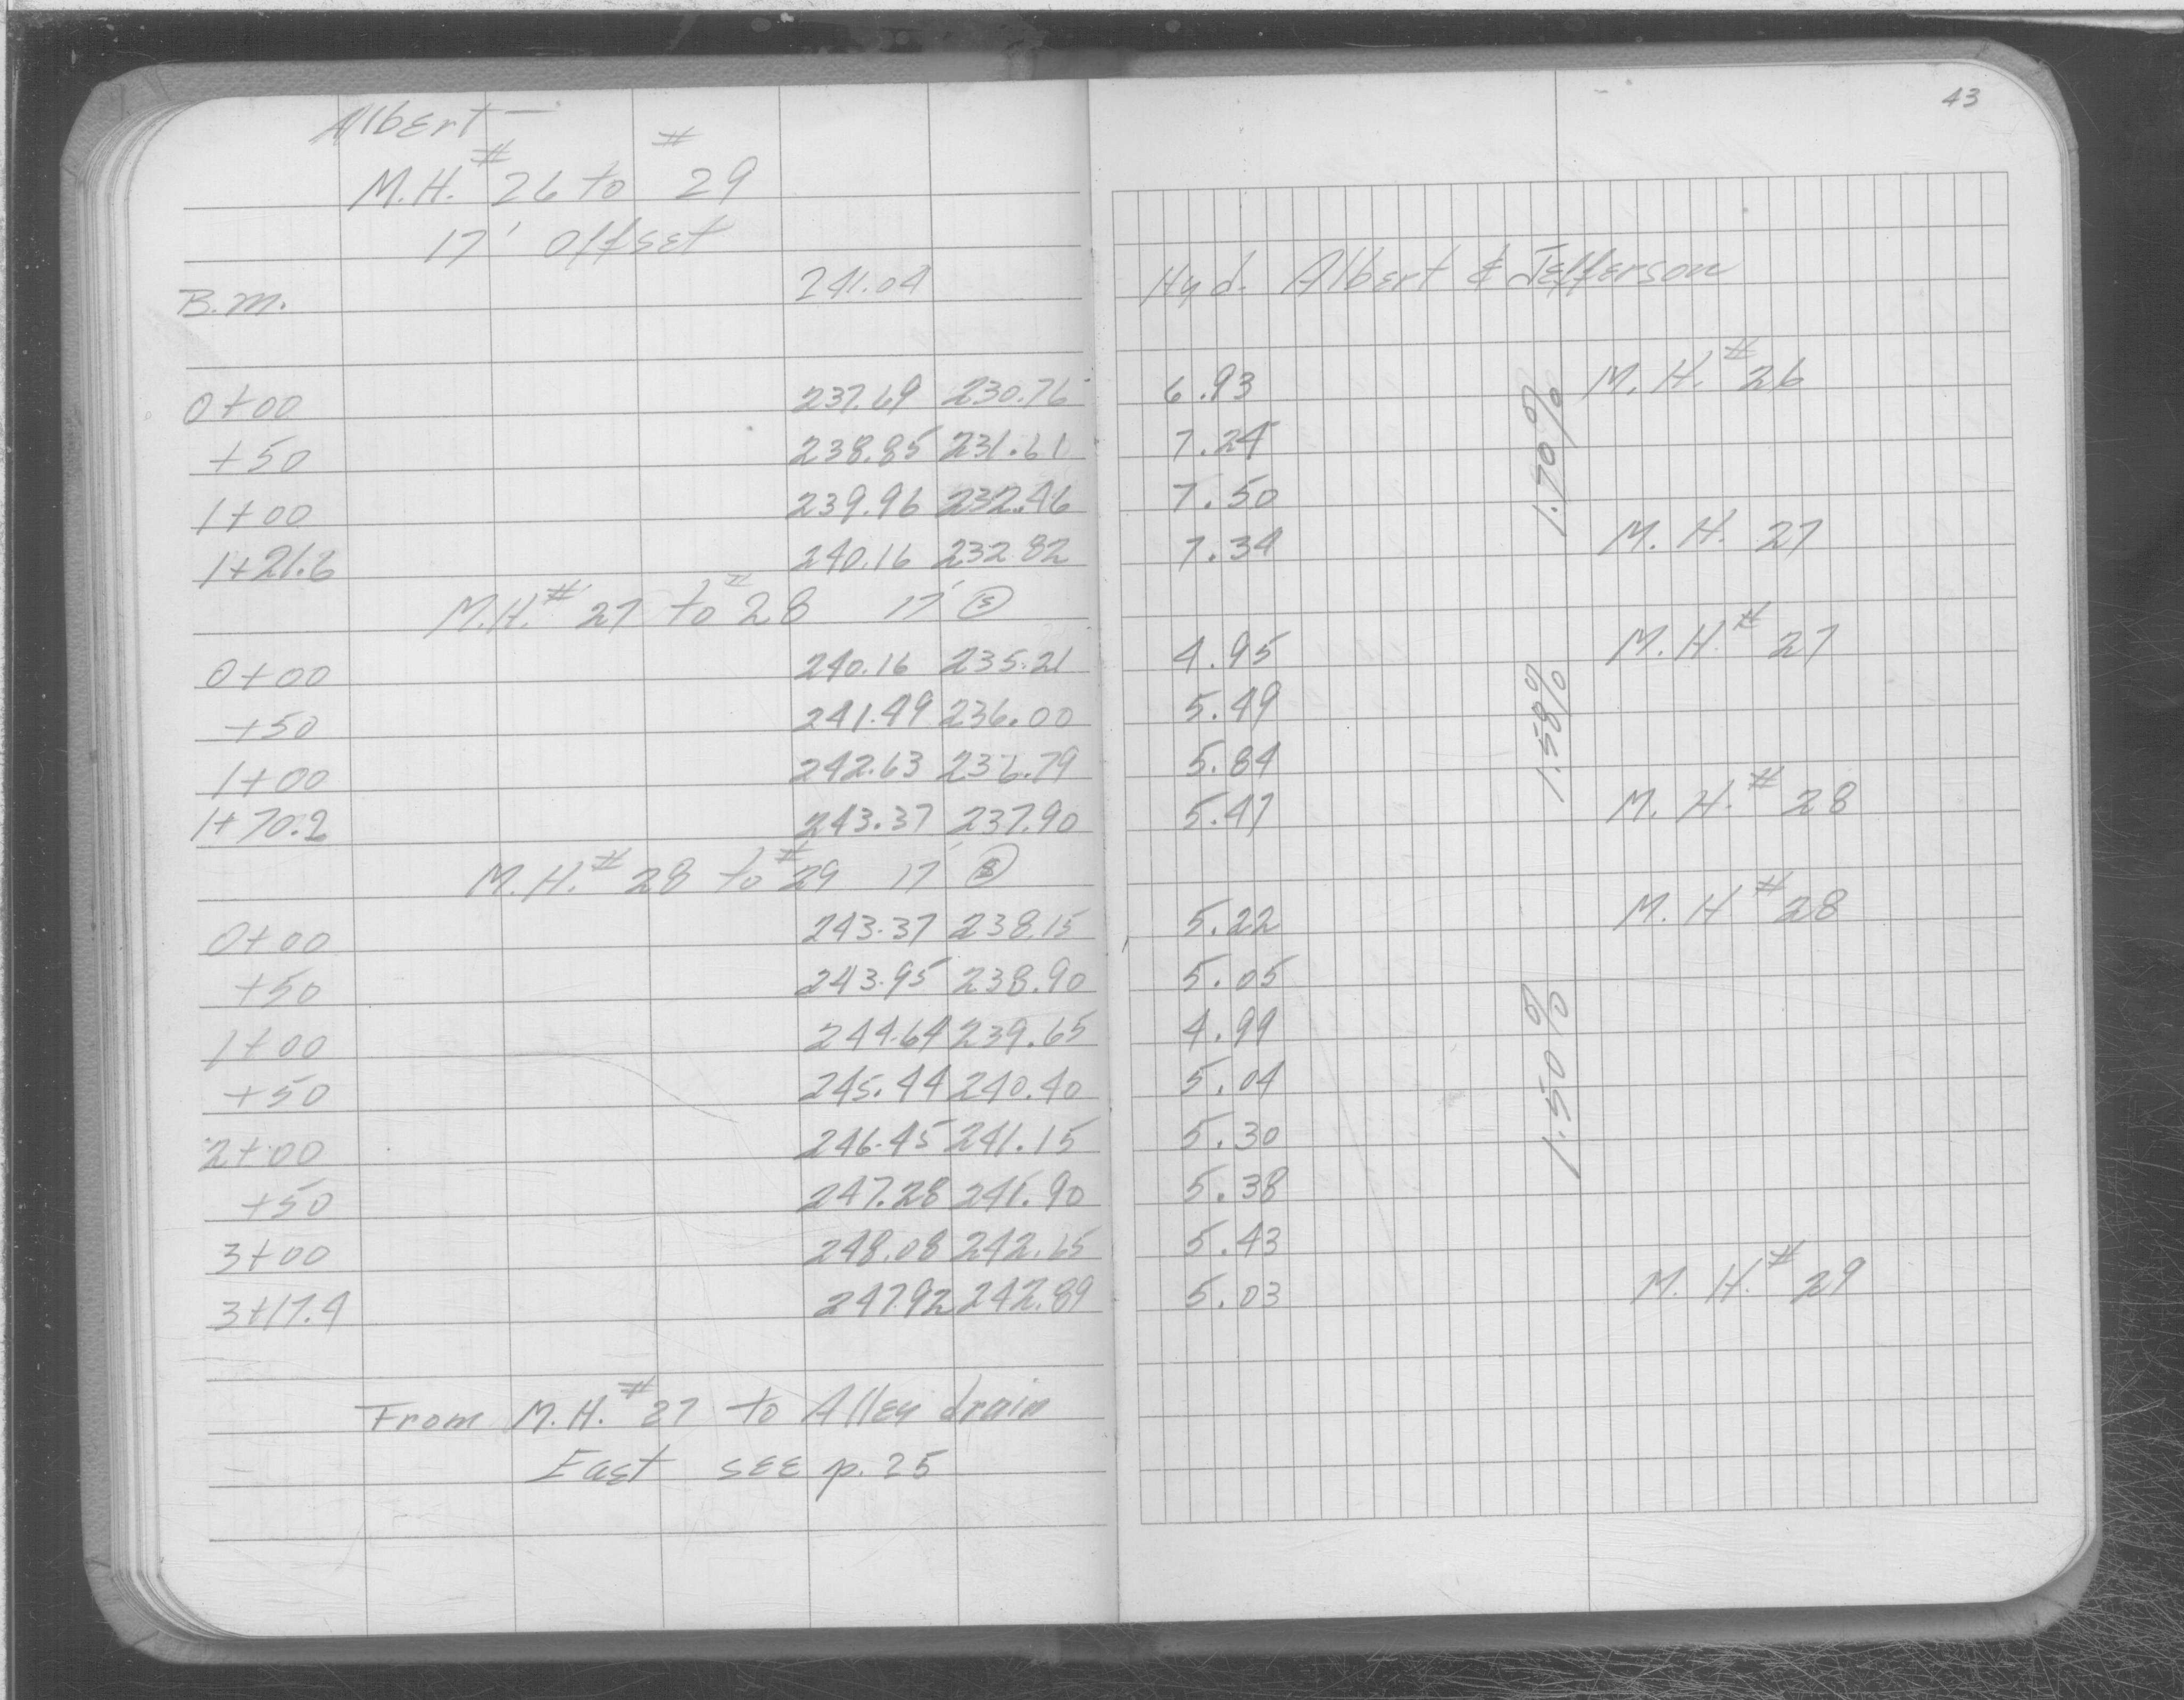 43
Albert —
M.H. # 26 to # 29
17' Offset
B.M. 241.04 Hyd. Albert & Jefferson
0+00 237.69 230.76 6.93 M.H. # 26
+50 238.85 231.61 7.24
1.70%
1+00 239.96 232.46 7.50
1+21.6 240.16 232.82 7.34 M.H. 27
M.H. # 27 to # 28 17' (S)
0+00 240.16 235.21 4.95 M.H. # 27
+50 241.49 236.00 5.49
1.58%
1+00 242.63 236.79 5.84
1+70.2 243.37 237.90 5.47 M.H. # 28
M.H. # 28 to # 29 17'
0+00 243.37 238.15 5.22 M.H. # 28
+50 243.95 238.90 5.05
1+00 244.64 239.65 4.99
1.50%
+50 245.44 240.40 5.04
2+00 246.45 241.15 5.30
+50 247.28 241.90 5.38
3+00 248.08 242.65 5.43
3+17.4 247.92 242.89 5.03 M.H. # 29
From M.H. # 27 to Alley drain
East see p. 25